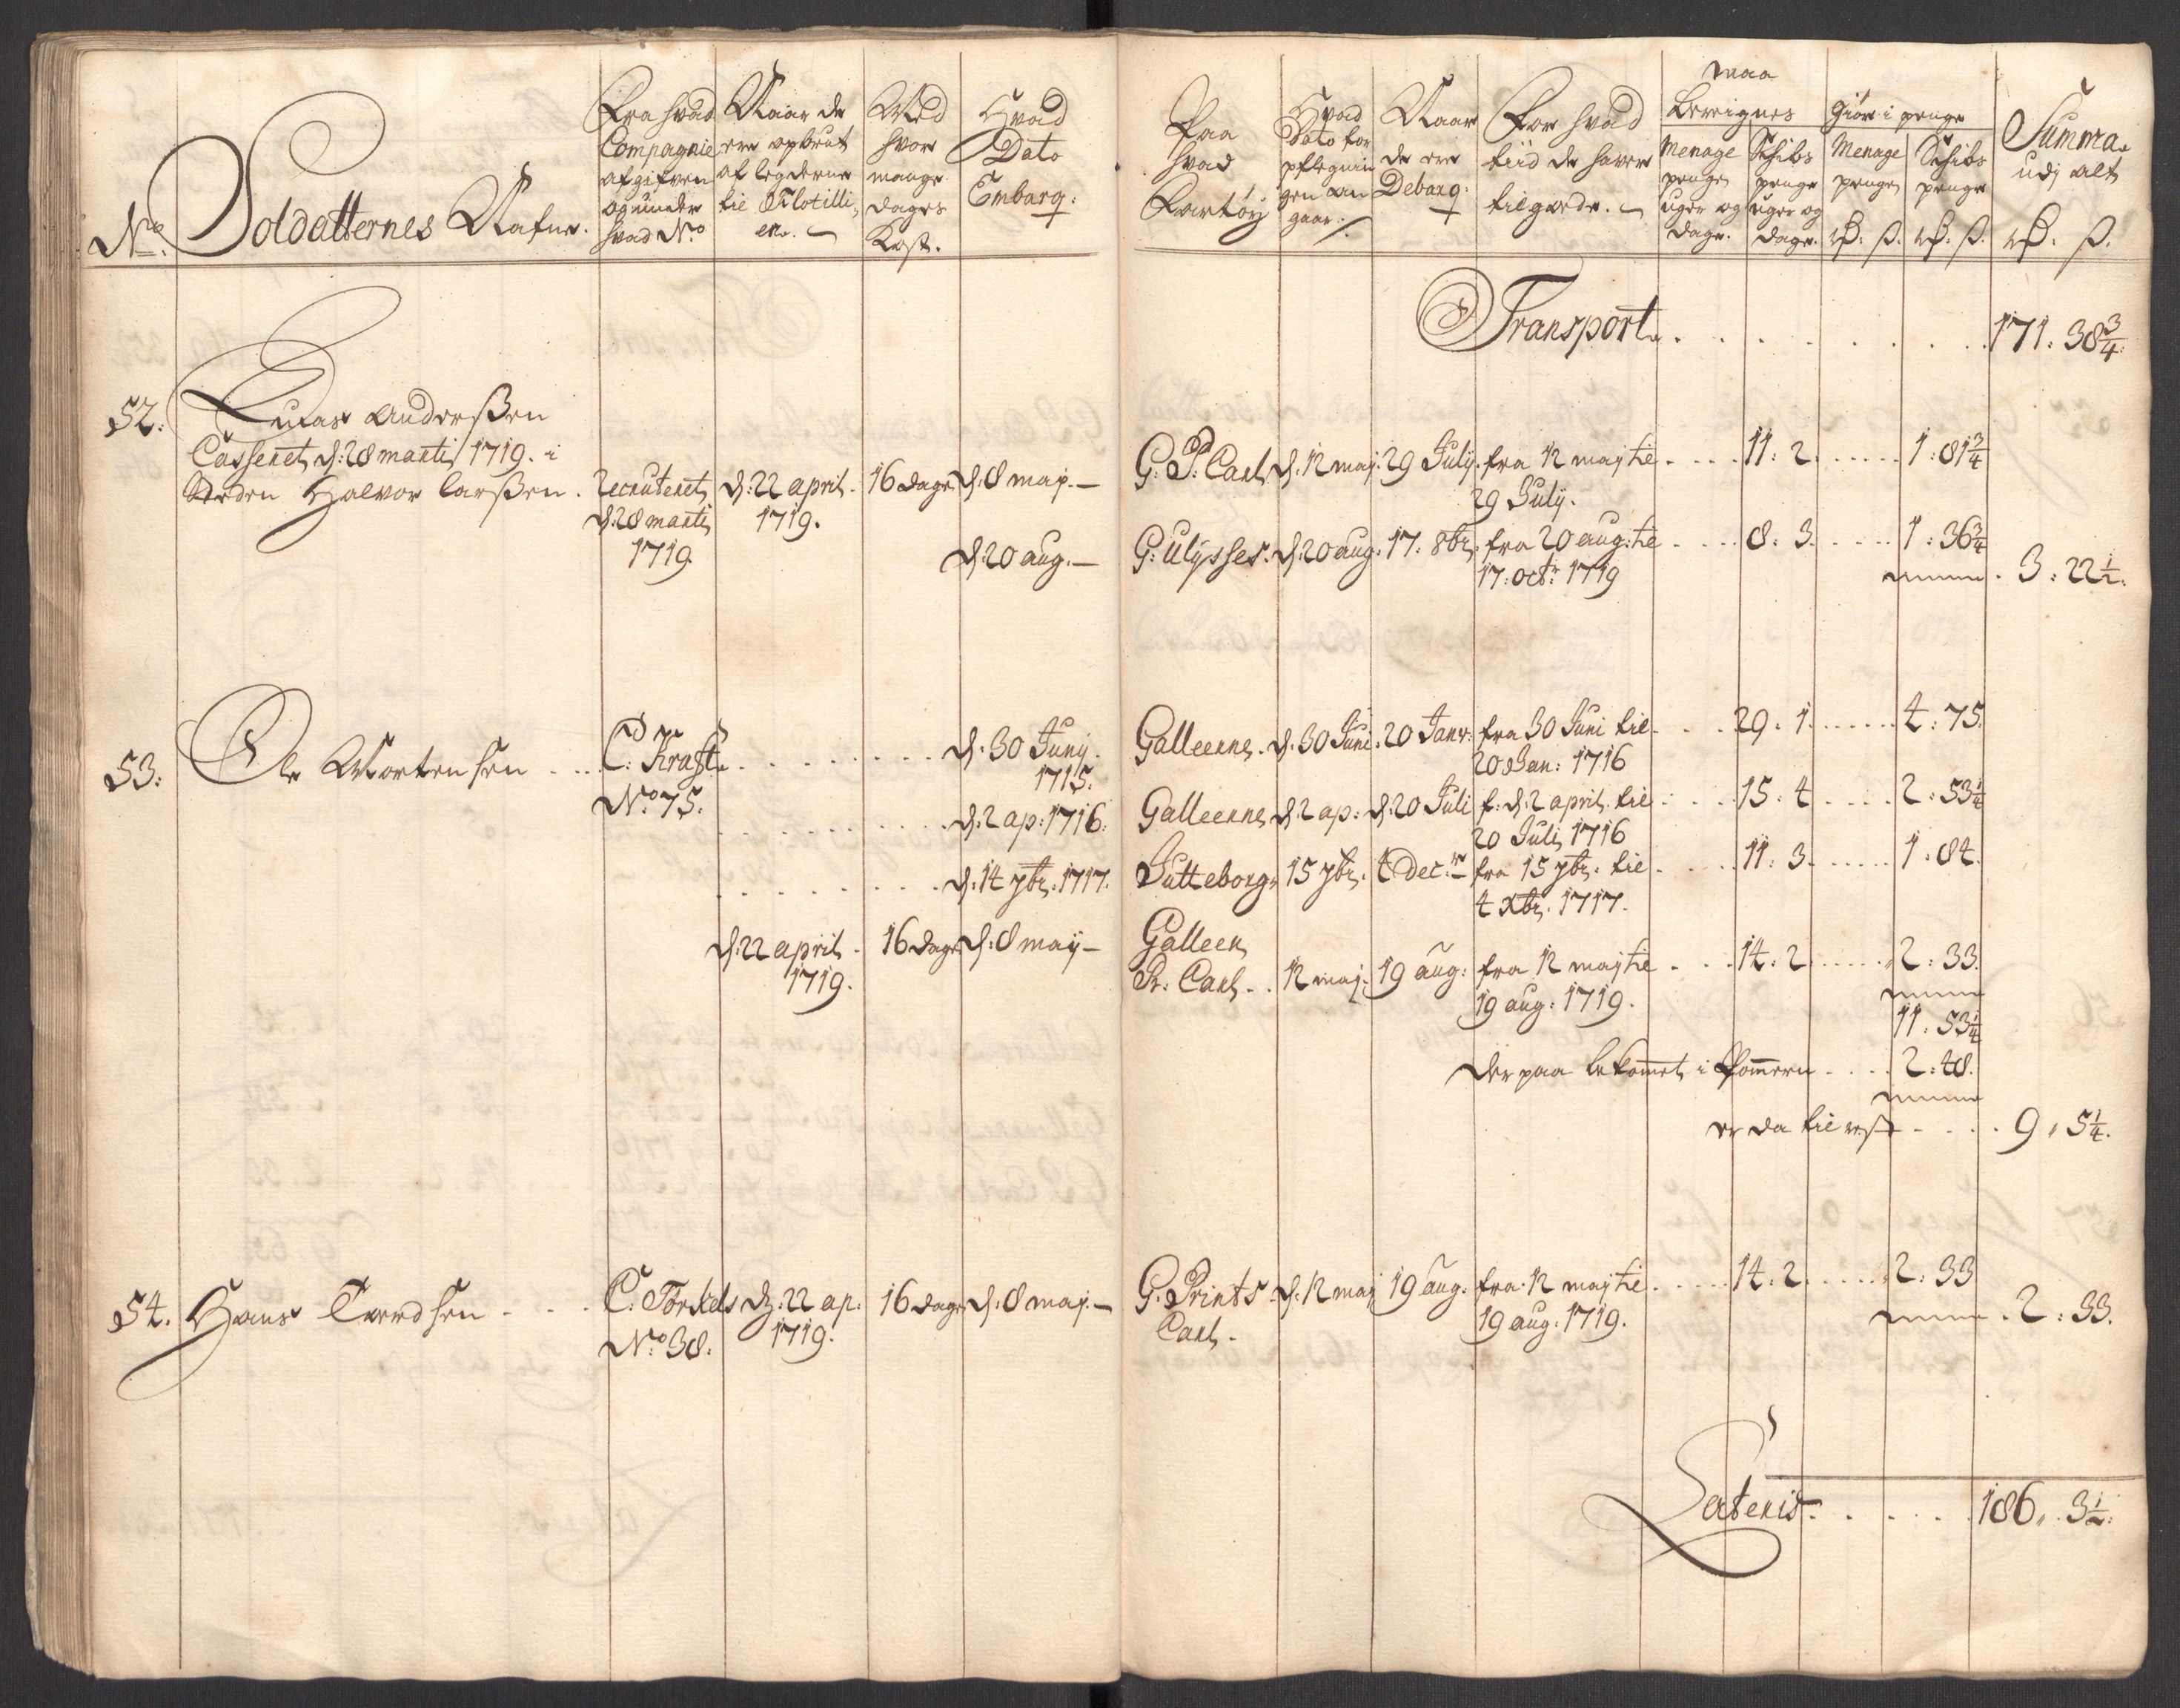 No.
Soldatternes Nafne.
Fra hvad
Compagnie
afgifven
og under
hvad No.
Naar de
ere opbrut
af legderne
til Flotilli,
en.
Med
hvor
mange
dages
Kost.
Hvad
Dato
Embarq:
Paa
hvad
Fartöy
Hvad
Dato for
pflegnin
gen an
gaar.
Naar
de ere
Debarq:
For hvad
tiid de haver
tilgode.
maa
Bereignes
Menage
penge
uger og
dage.
Schibs
penge
uger og
dage.
Giör i penge
Menage
penge
rd: s.
Schibs
penge
rd: s.
Summa
udj alt
rd: s.
Transport . . . . . . 171: 38 3/4:
52.
Lucas Anderssen
Casseret d: 28 marti 1719. i
Steden Halvor Larssen.
Recruteret
d: 28 marti
1719
d: 22 april
1719.
16 dage
d: 8 maj.
G: P: Carl d. 12 maj. 29 July. fra 12 maj til
29 July.
11: 2 . . . . 1: 81 3/4
d: 20 aug.
G: Ulysses. d: 20 aug. 17. 8br. fra 20 aug: til
17: octr 1719
8: 3. . . . . 1: 36 3/4
3: 22 1/2.
53.
Ole Mortensen . . .
C: Kraft.
No. 75.
d. 30 Juny.
1715.
Galleerne. d. 30 Juni. 20 Janr: fra 30 Juni til
20 Jan: 1716
29: 1. . . . . 4: 75.
d: 2 ap: 1716.
Galleerne d: 2 ap: d: 20 Juli f: d: 2 april til
20 Juli 1716
15. 4 . . . . 2: 53 1/4
d. 14 7br. 1717.
Jutteborg 15 7br. 4 Decr. fra 15 7br. til
4 Xbr. 1717.
11: 3. . . . . 1: 84.
d: 22 april
1719.
16 dage d: 8 maij
Galleen
Pr. Carl . . 12 maj. 19 aug: fra 12 maj til
19 aug: 1719.
14: 2 . . . . 2: 33.
11: 53 1/4
der paa bekomet i Pomern . . . . 2: 48.
er da til rest . . . . 9: 5 1/4.
54.
Hans Tordsen . . .
C: Torkels
No. 38.
d: 22 ap:
1719.
16 dage d: 8 maj.
G. Prints
Carl.
d. 12 maj 19 aug. fra 12 maj til
19 aug. 1719.
14: 2 . . . . 2: 33
2: 33.
Lateris . . . . . . 186. 3 1/2.